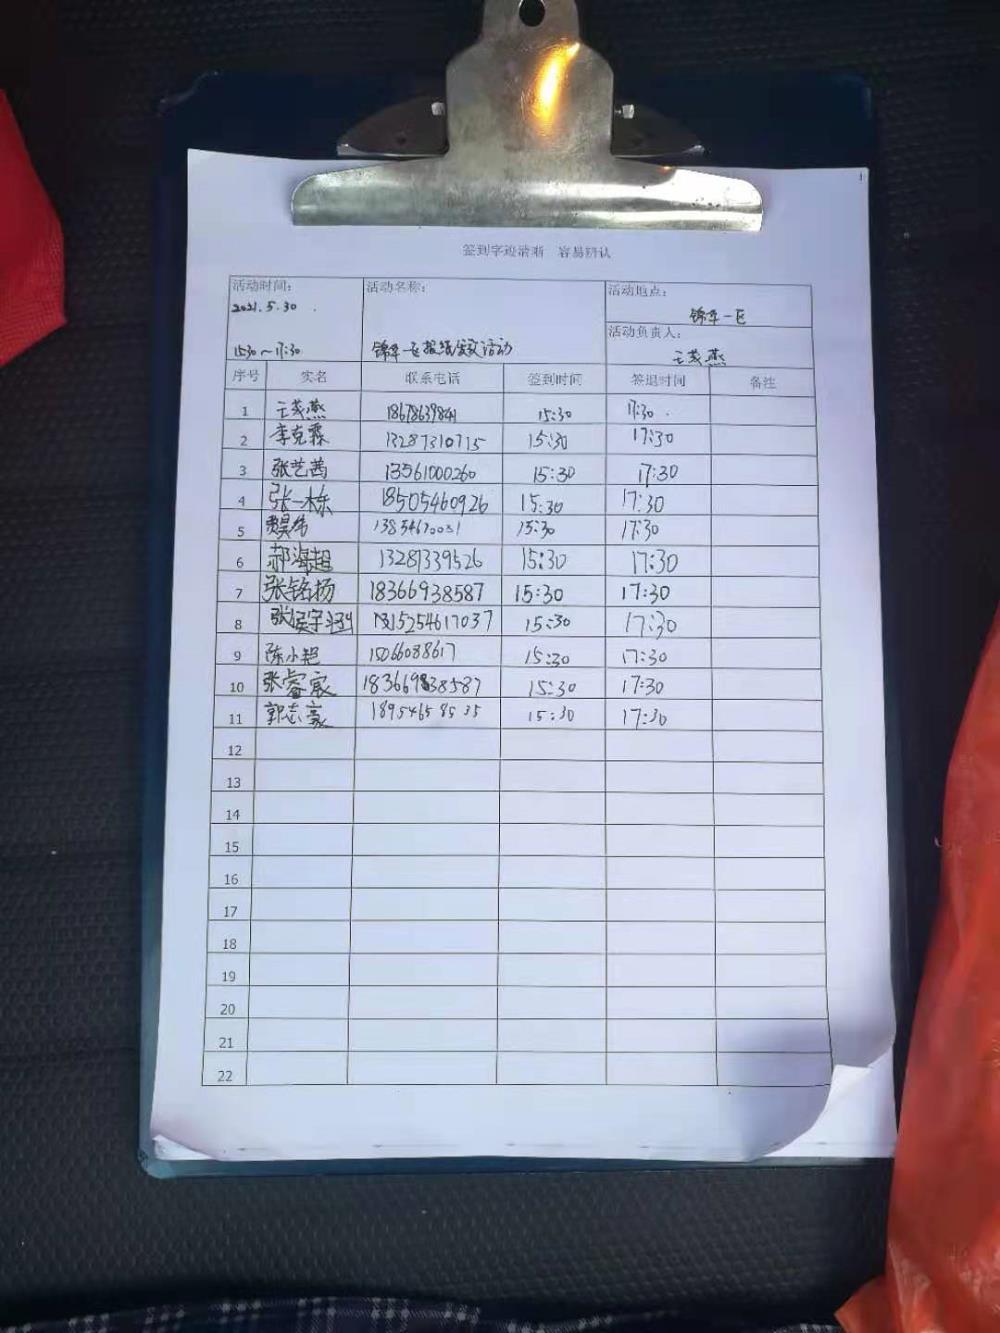 签到字迹清晰 容易辨认
活动时间: 活动名称: 活动地点:
2021.5.30. 锦华一区
活动负责人:
15:30～17:30 锦华一区报纸发放活动 王茂燕
序号 实名 联系电话 签到时间 签退时间 备注
1 王茂燕 15:30 17:30.
2 李克霖 13287310715 15:30 17:30
3 张艺茜 13561000260 15:30 17:30
4 张一栋 18505460926 15:30 17:30
5 15:30 17:30
6 郝海超 13281339526 15:30 17:30
7 张铭扬 18366938587 15:30 17:30
8 15254617037 15:30 17:30
9 陈小艳 15066088617 15:30 17:30
10 张睿宸 18366938587 15:30 17:30
11 郭志豪 18954658535 15:30 17:30
12
13
14
15
16
17
18
19
20
21
22